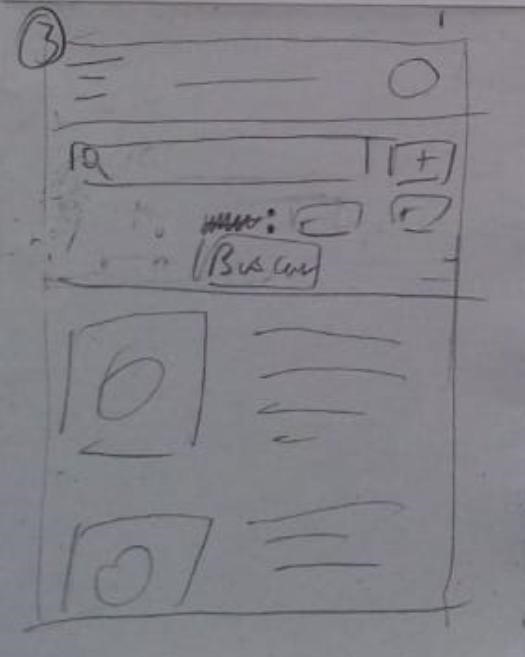 3
+
Buscar